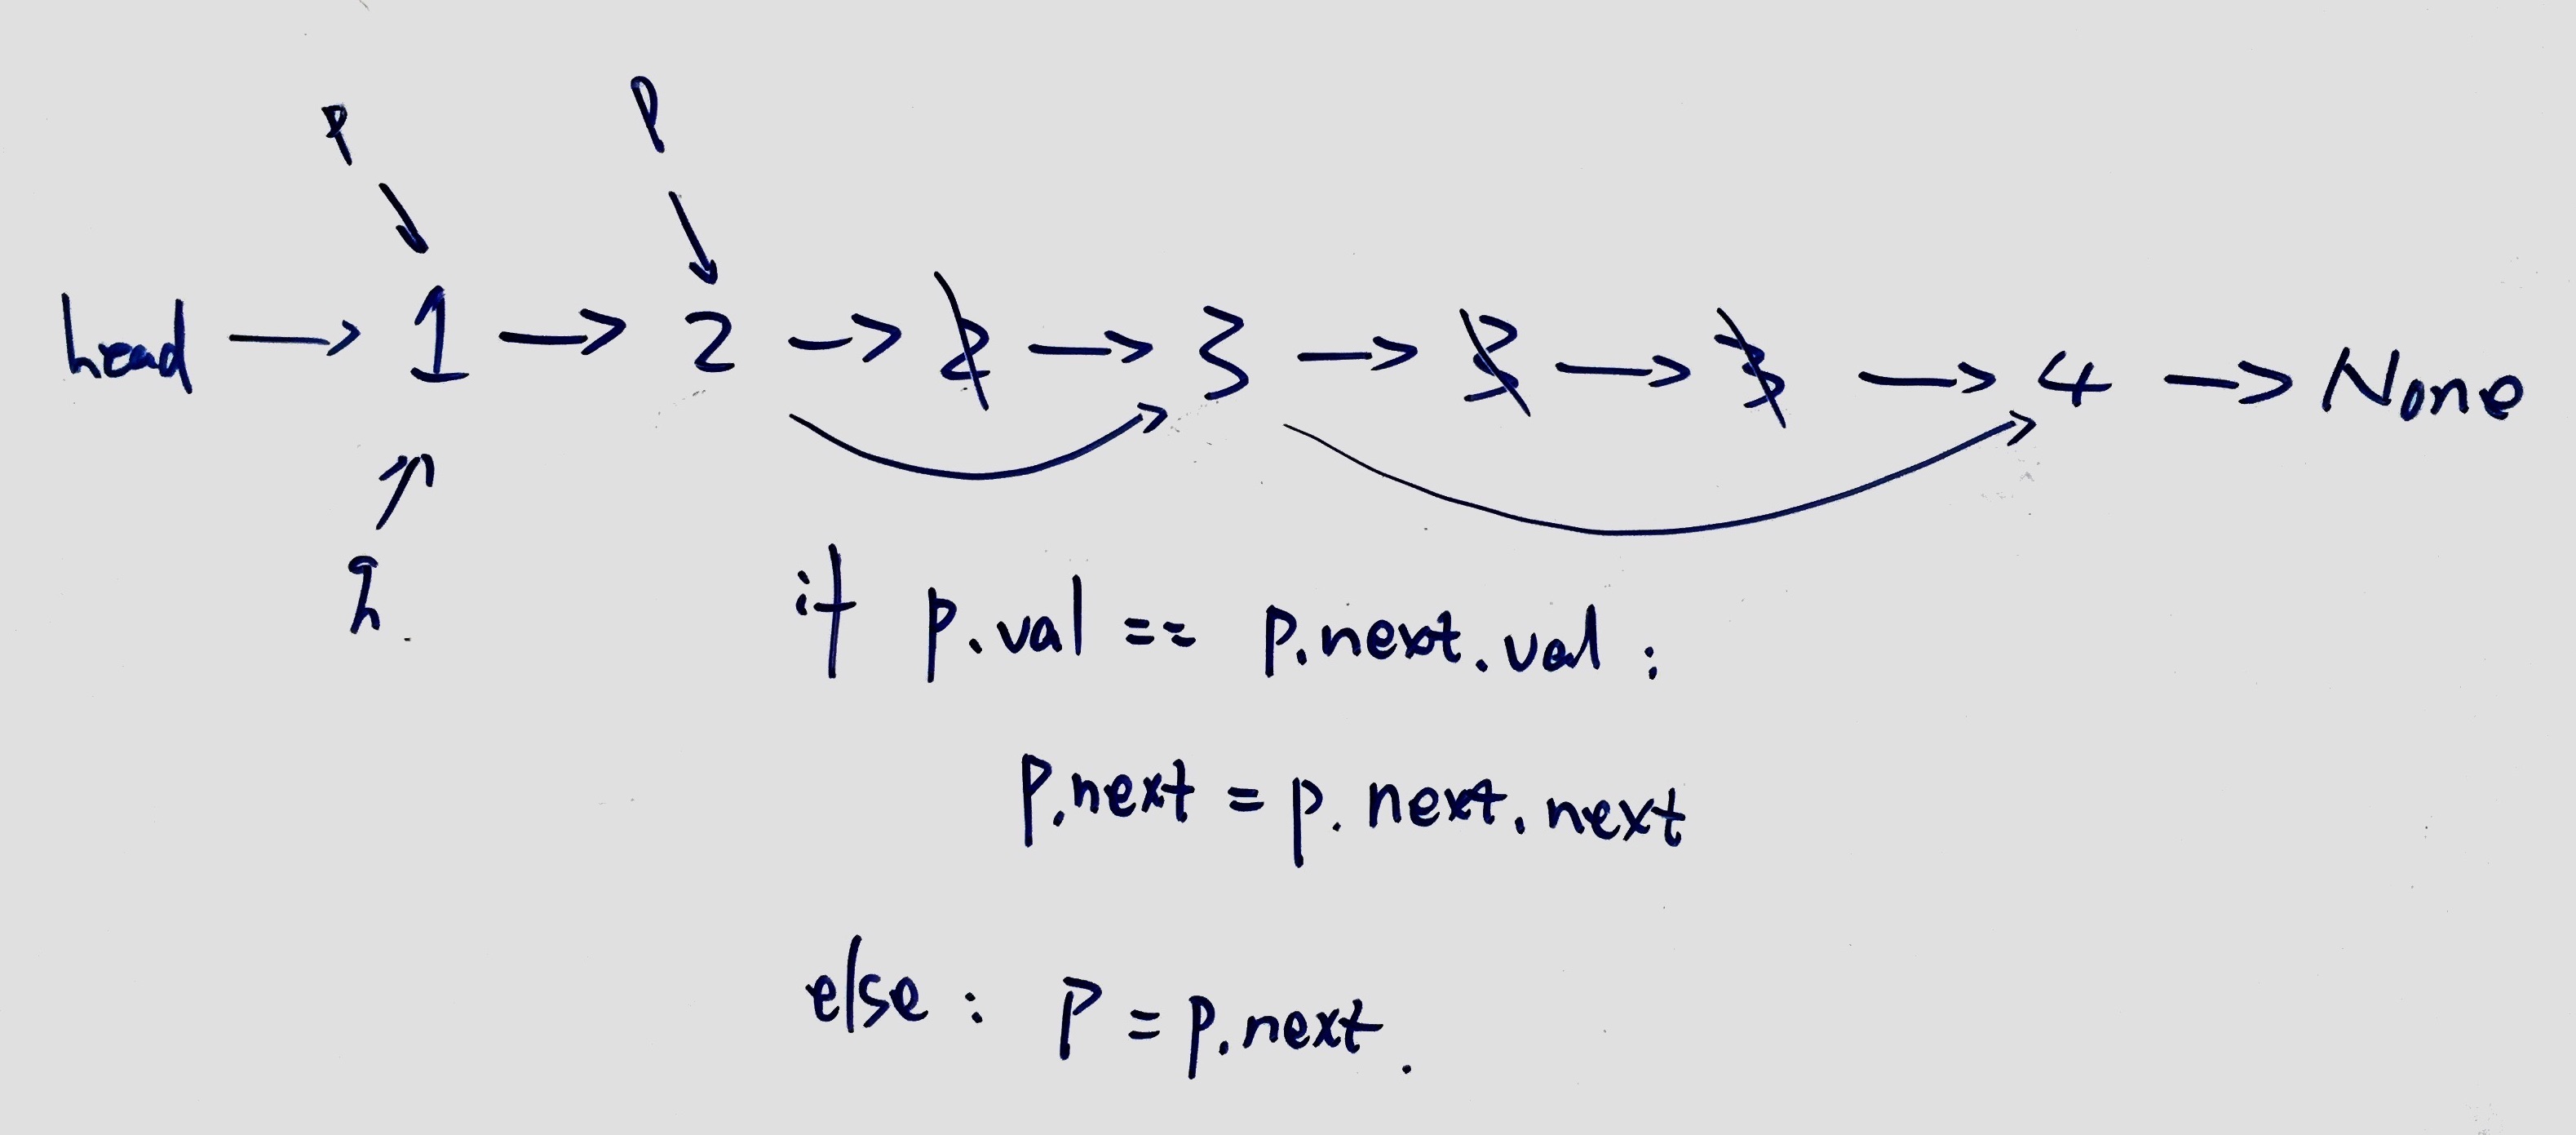 p p
head → 1 → 2 → 2 → 3 → 3 → 3 → 4 → None
h.
if p.val == p.next.val :
p.next = p.next.next
else : p = p.next.